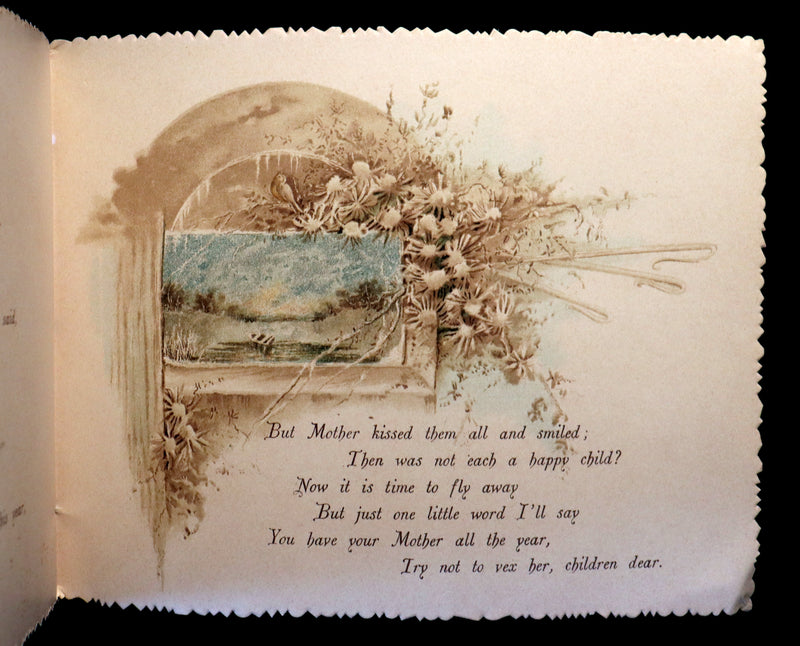 said,
year.
But Mother kissed them all and smiled;
Then was not each a happy child?
Now it is time to fly away
But just one little word I'll say
You have your Mother all the year,
Try not to vex her, children dear.